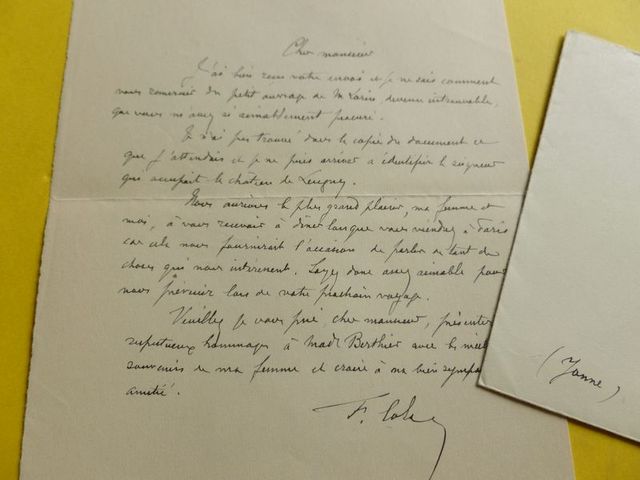 Cher monsieur
J'ai bien reçu votre envoi et je ne sais comment
vous remercier du petit ouvrage de M. Lorin, devenu introuvable,
que vous m'avez si aimablement procuré.
Je n'ai pas trouvé dans la copie du document ce
que j'attendais et je ne puis arriver a identifier le seigneur
qui occupait le chateau de
Nous aurions le plus grand plaisir, ma femme et
moi, à vous recevoir à dîner lorsque vous viendrez à Paris
car cela nous fournirait l'occasion de parler de tant de
choses qui nous intéressent. Soyez donc assez aimable pour
nous prévenir lors de votre prochain voyage.
Veuillez je vous prie, cher monsieur, présenter
respectueux hommages à Mad. Berthier avec les
souvenirs de ma femme et croire à ma bien
amitié.
F.
(Yonne)